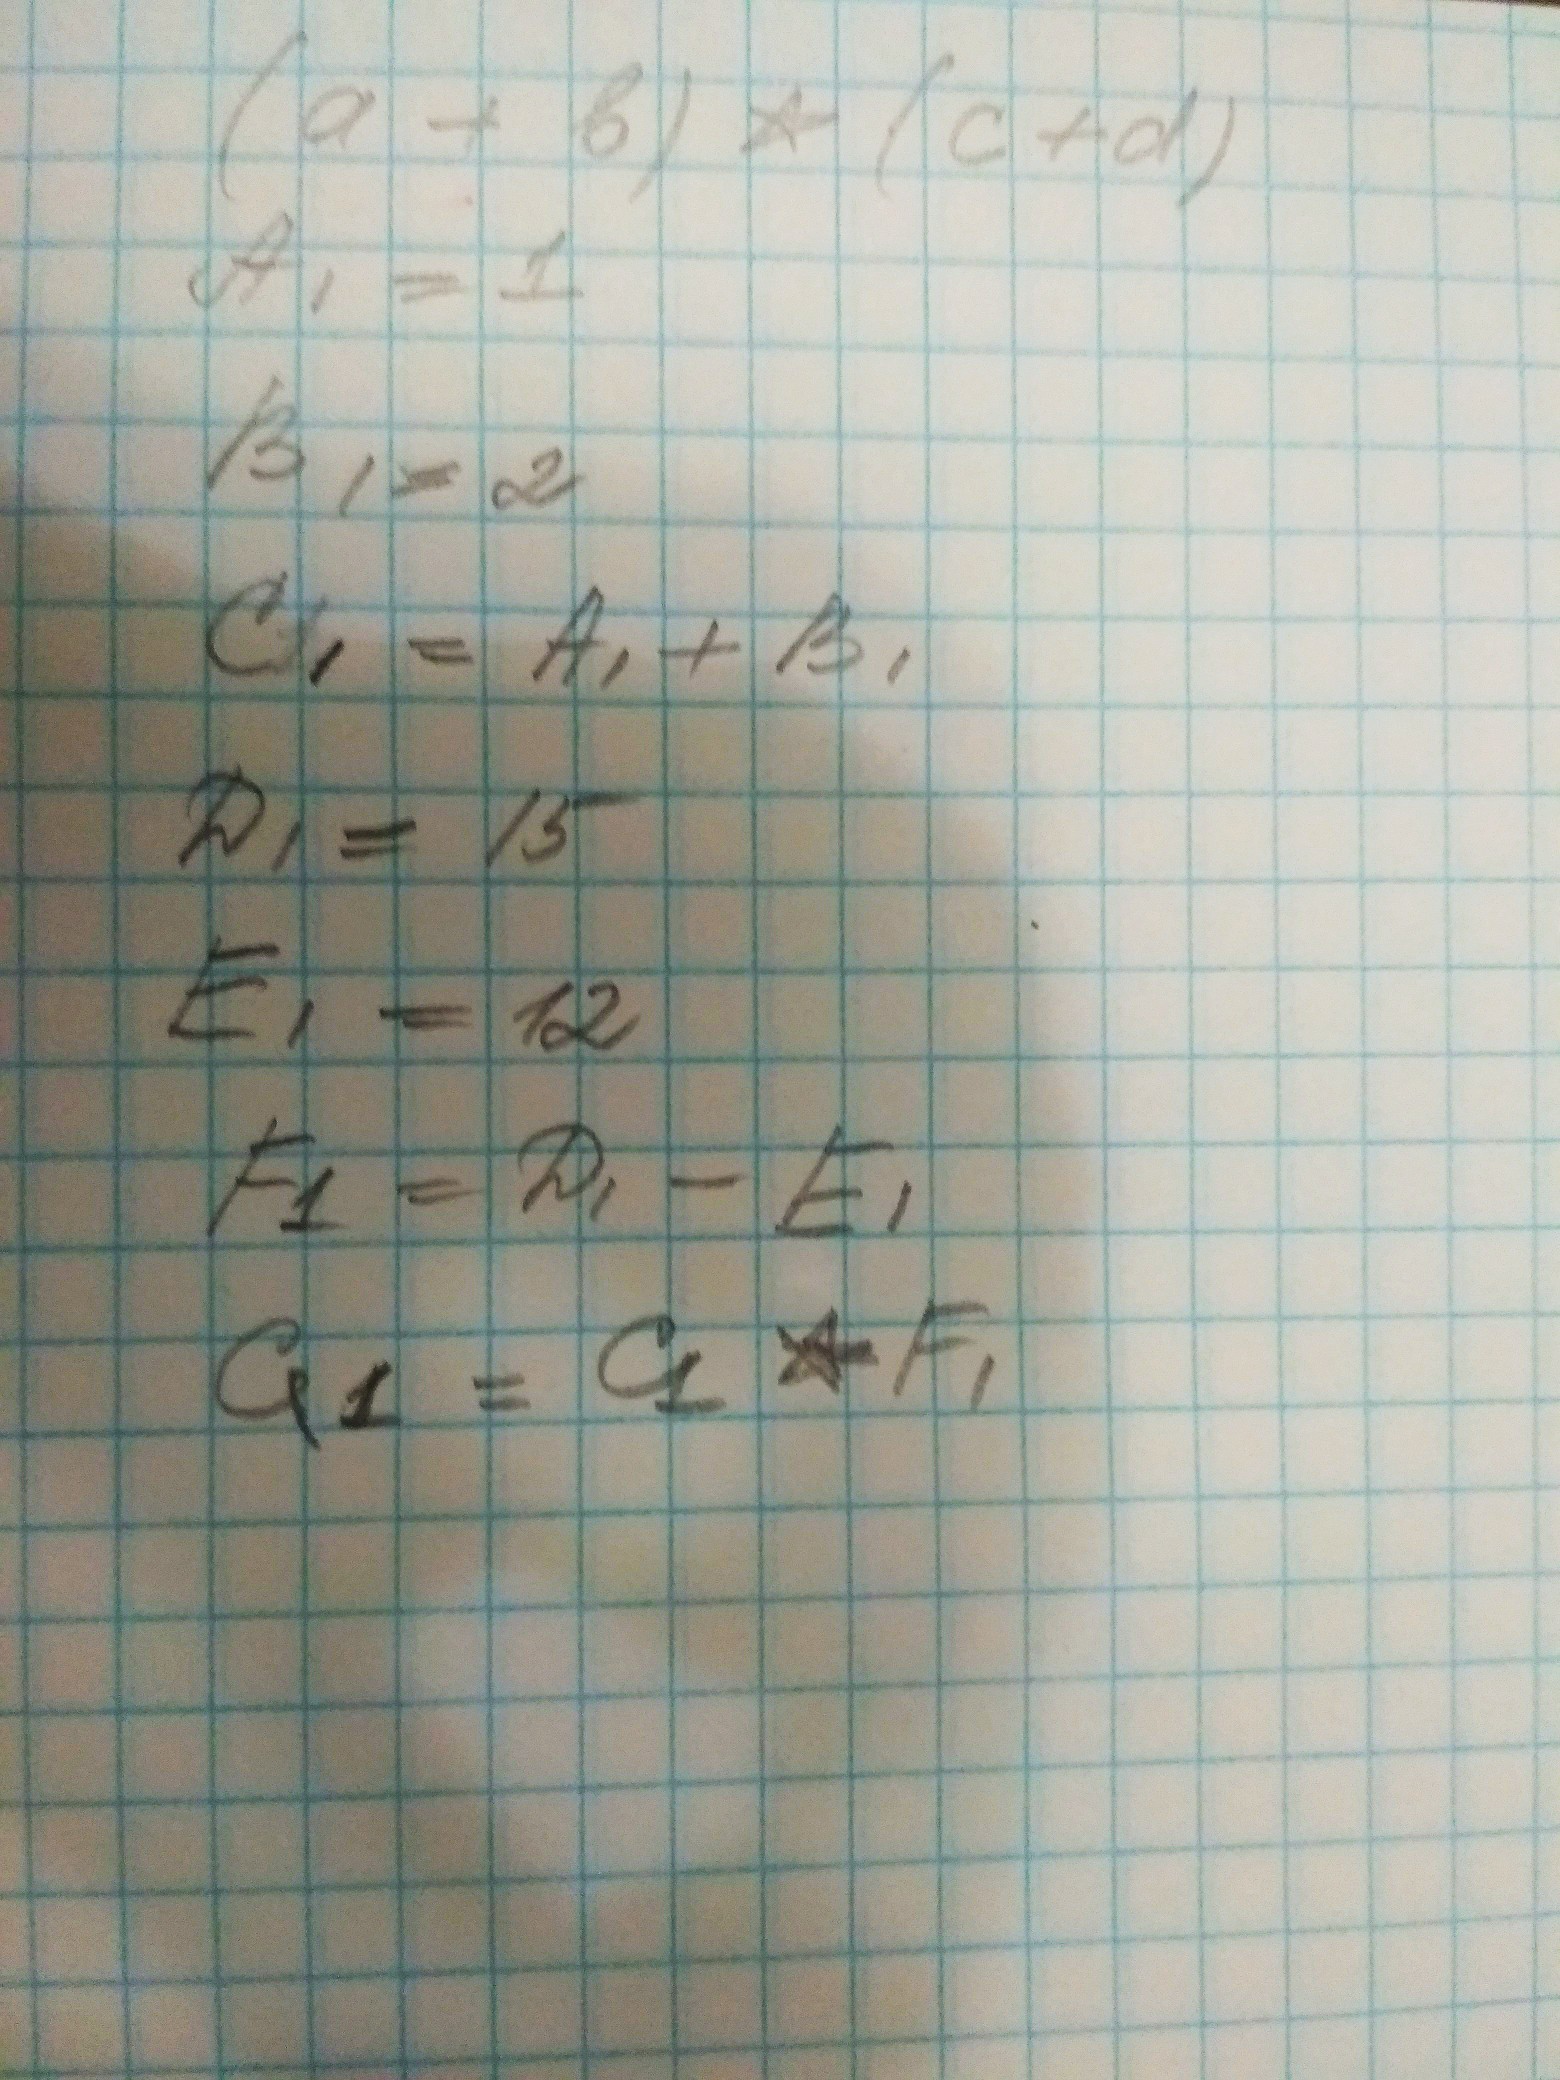 (a + b) * (c + d)
A1 = 1
B1 = 2
C1 = A1 + B1
D1 = 15
E1 = 12
F1 = D1 - E1
G1 = C1 * F1